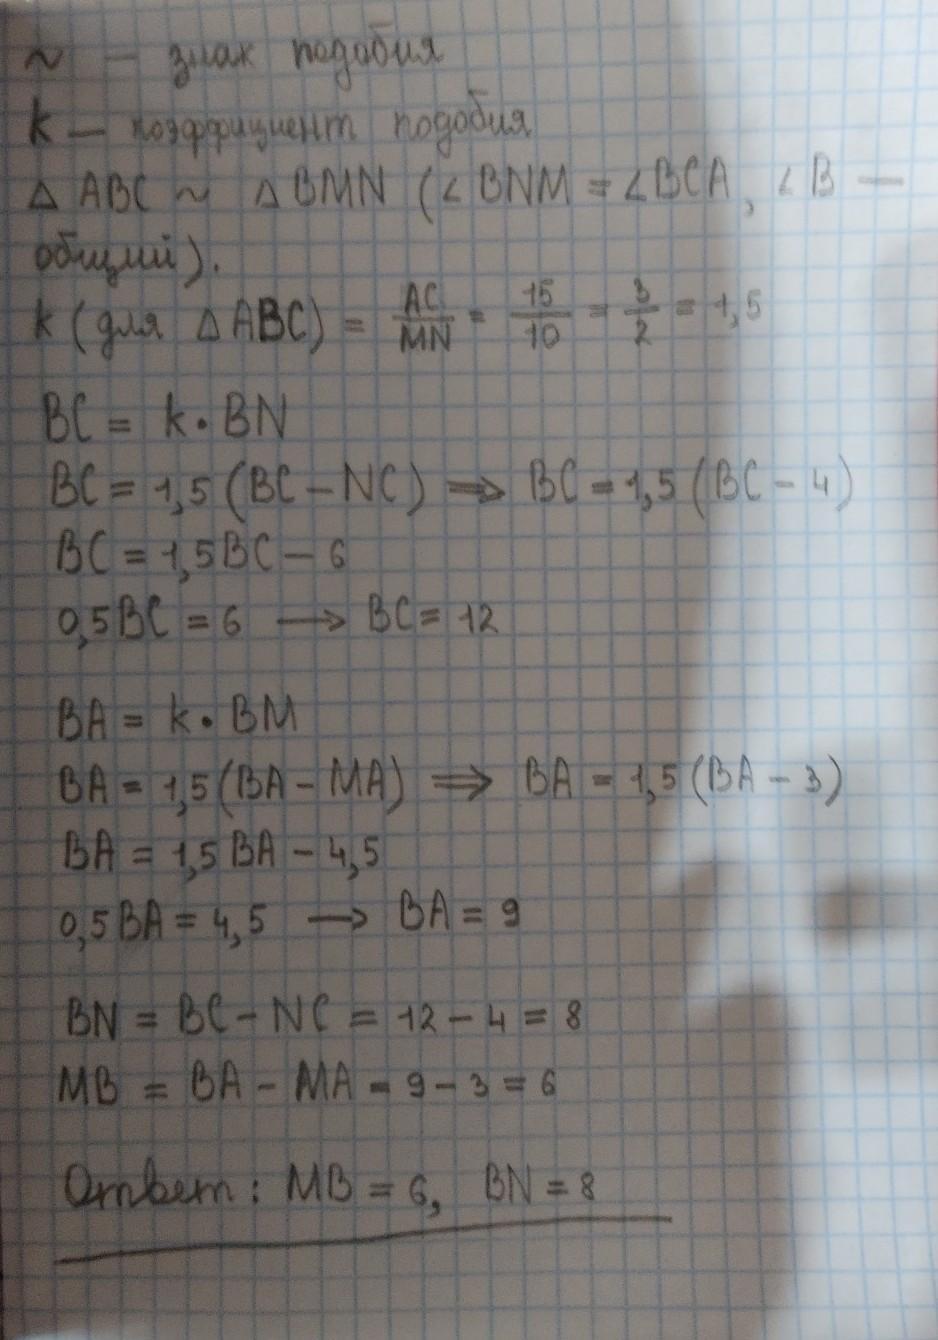 ~ — знак подобия
k — коэффициент подобия
△ ABC ~ △ BMN (∠BNM = ∠BCA, ∠B —
общий).
k (для △ ABC) = AC/MN = 15/10 = 3/2 = 1,5
BC = k • BN
BC = 1,5 (BC – NC) ⇒ BC = 1,5 (BC – 4)
BC = 1,5BC – 6
0,5BC = 6 → BC = 12
BA = k • BM
BA = 1,5(BA – MA) ⇒ BA = 1,5 (BA – 3)
BA = 1,5BA – 4,5
0,5BA = 4,5 → BA = 9
BN = BC – NC = 12 – 4 = 8
MB = BA – MA = 9 – 3 = 6
Ответ: MB = 6, BN = 8